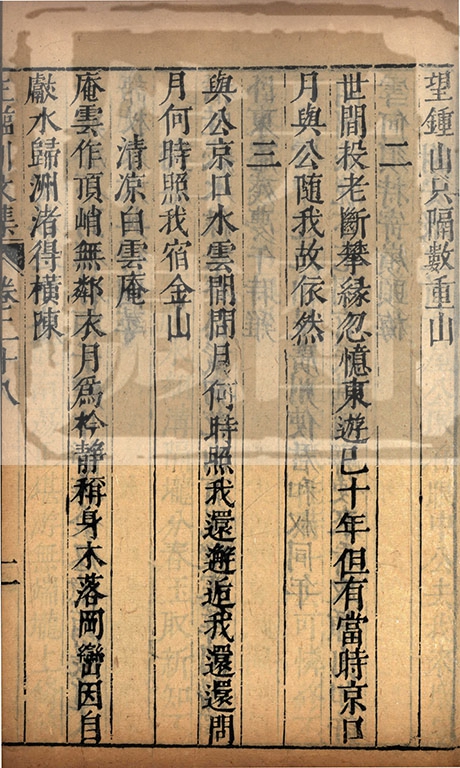 望鍾山只隔數重山
二
世間投老斷攀緣忽憶東遊已十年但有當時京口
月與公隨我故依然
三
與公京口水雲間問月何時照我還邂逅我還還問
月何時照我宿金山
清凉白雲庵
庵雲作頂峭無鄰衣月爲衿靜稱身木落岡巒因自
獻水歸洲渚得橫陳
王臨川文集 卷二十八